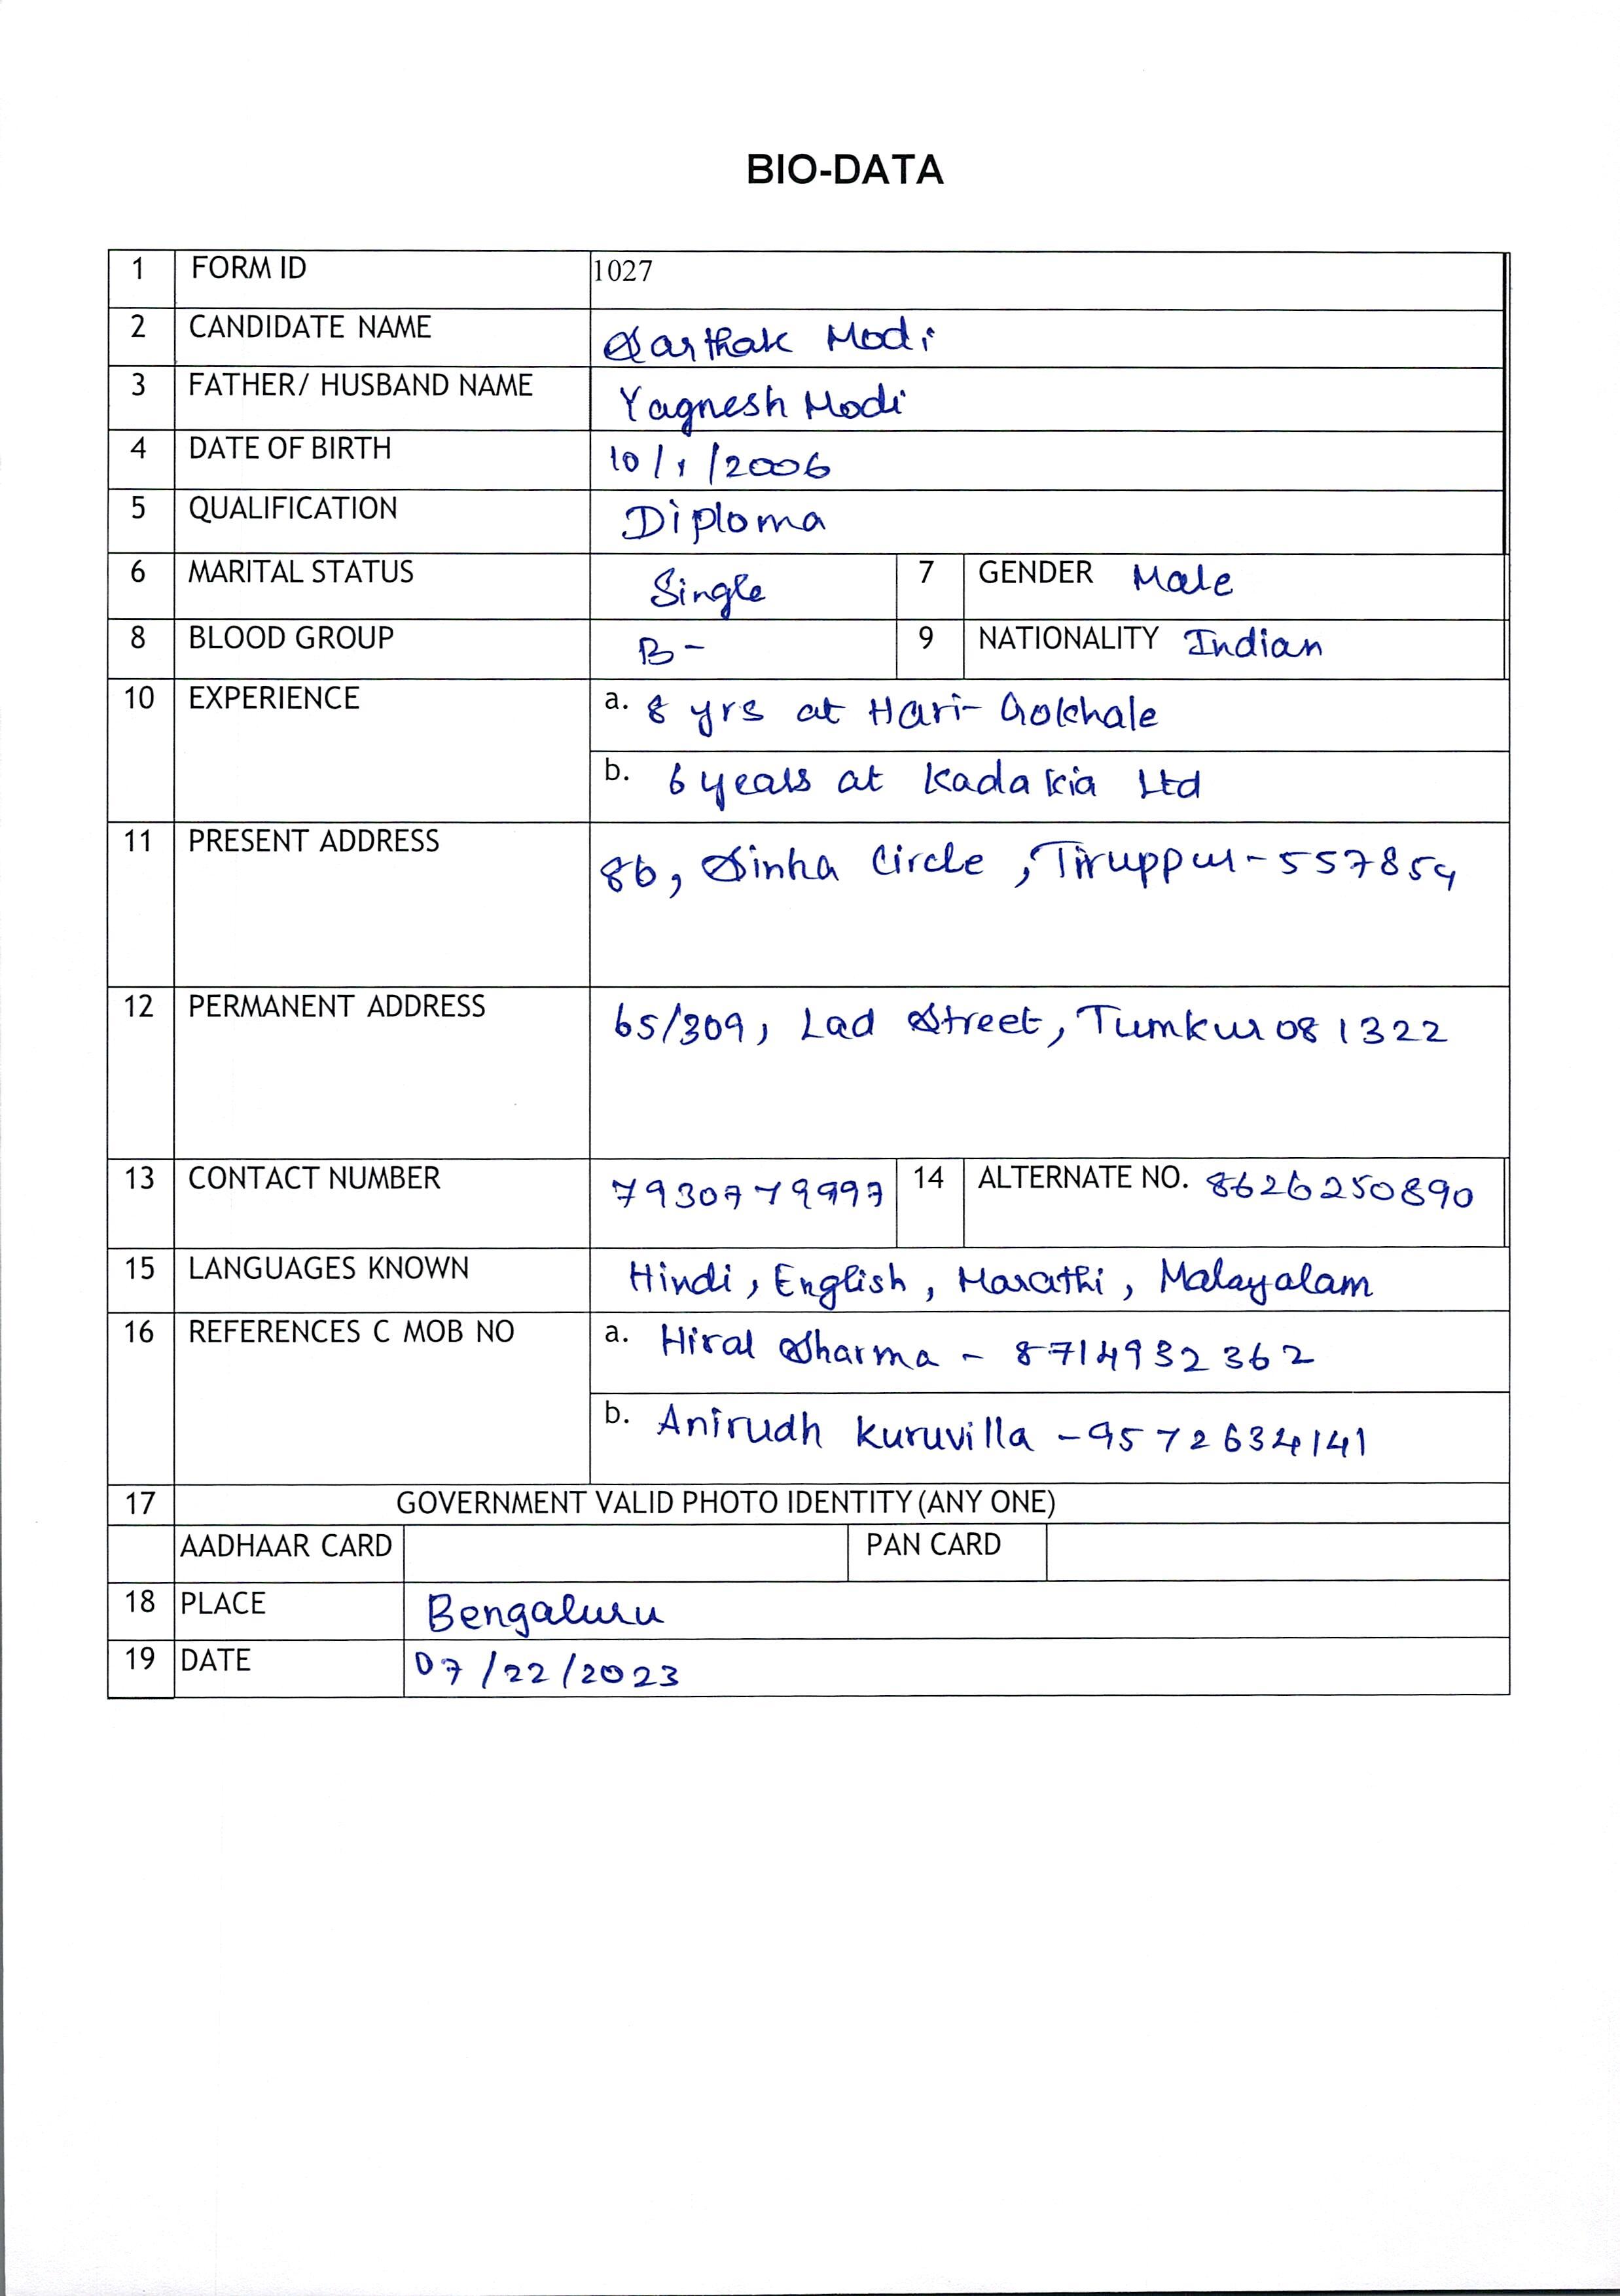 BIO-DATA
1 FORM ID 1027
2 CANDIDATE NAME Sarthak Modi
3 FATHER/ HUSBAND NAME Yagnesh Modi
4 DATE OF BIRTH 10/1/2006
5 QUALIFICATION Diploma
6 MARITAL STATUS Single 7 GENDER Male
8 BLOOD GROUP B- 9 NATIONALITY Indian
10 EXPERIENCE a. 8 yrs at Hari-Gokhale
b. 6 years at Kadakia Ltd
11 PRESENT ADDRESS 86, Sinha Circle, Tiruppur-557854
12 PERMANENT ADDRESS 65/309, Lad Street, Tumkur 081322
13 CONTACT NUMBER 7930779997 14 ALTERNATE NO. 8626250890
15 LANGUAGES KNOWN Hindi, English, Marathi, Malayalam
16 REFERENCES C MOB NO a. Hiral Sharma - 8714932362
b. Anirudh Kuruvilla - 9572634141
17 GOVERNMENT VALID PHOTO IDENTITY (ANY ONE)
AADHAAR CARD PAN CARD
18 PLACE Bengaluru
19 DATE 07/22/2023